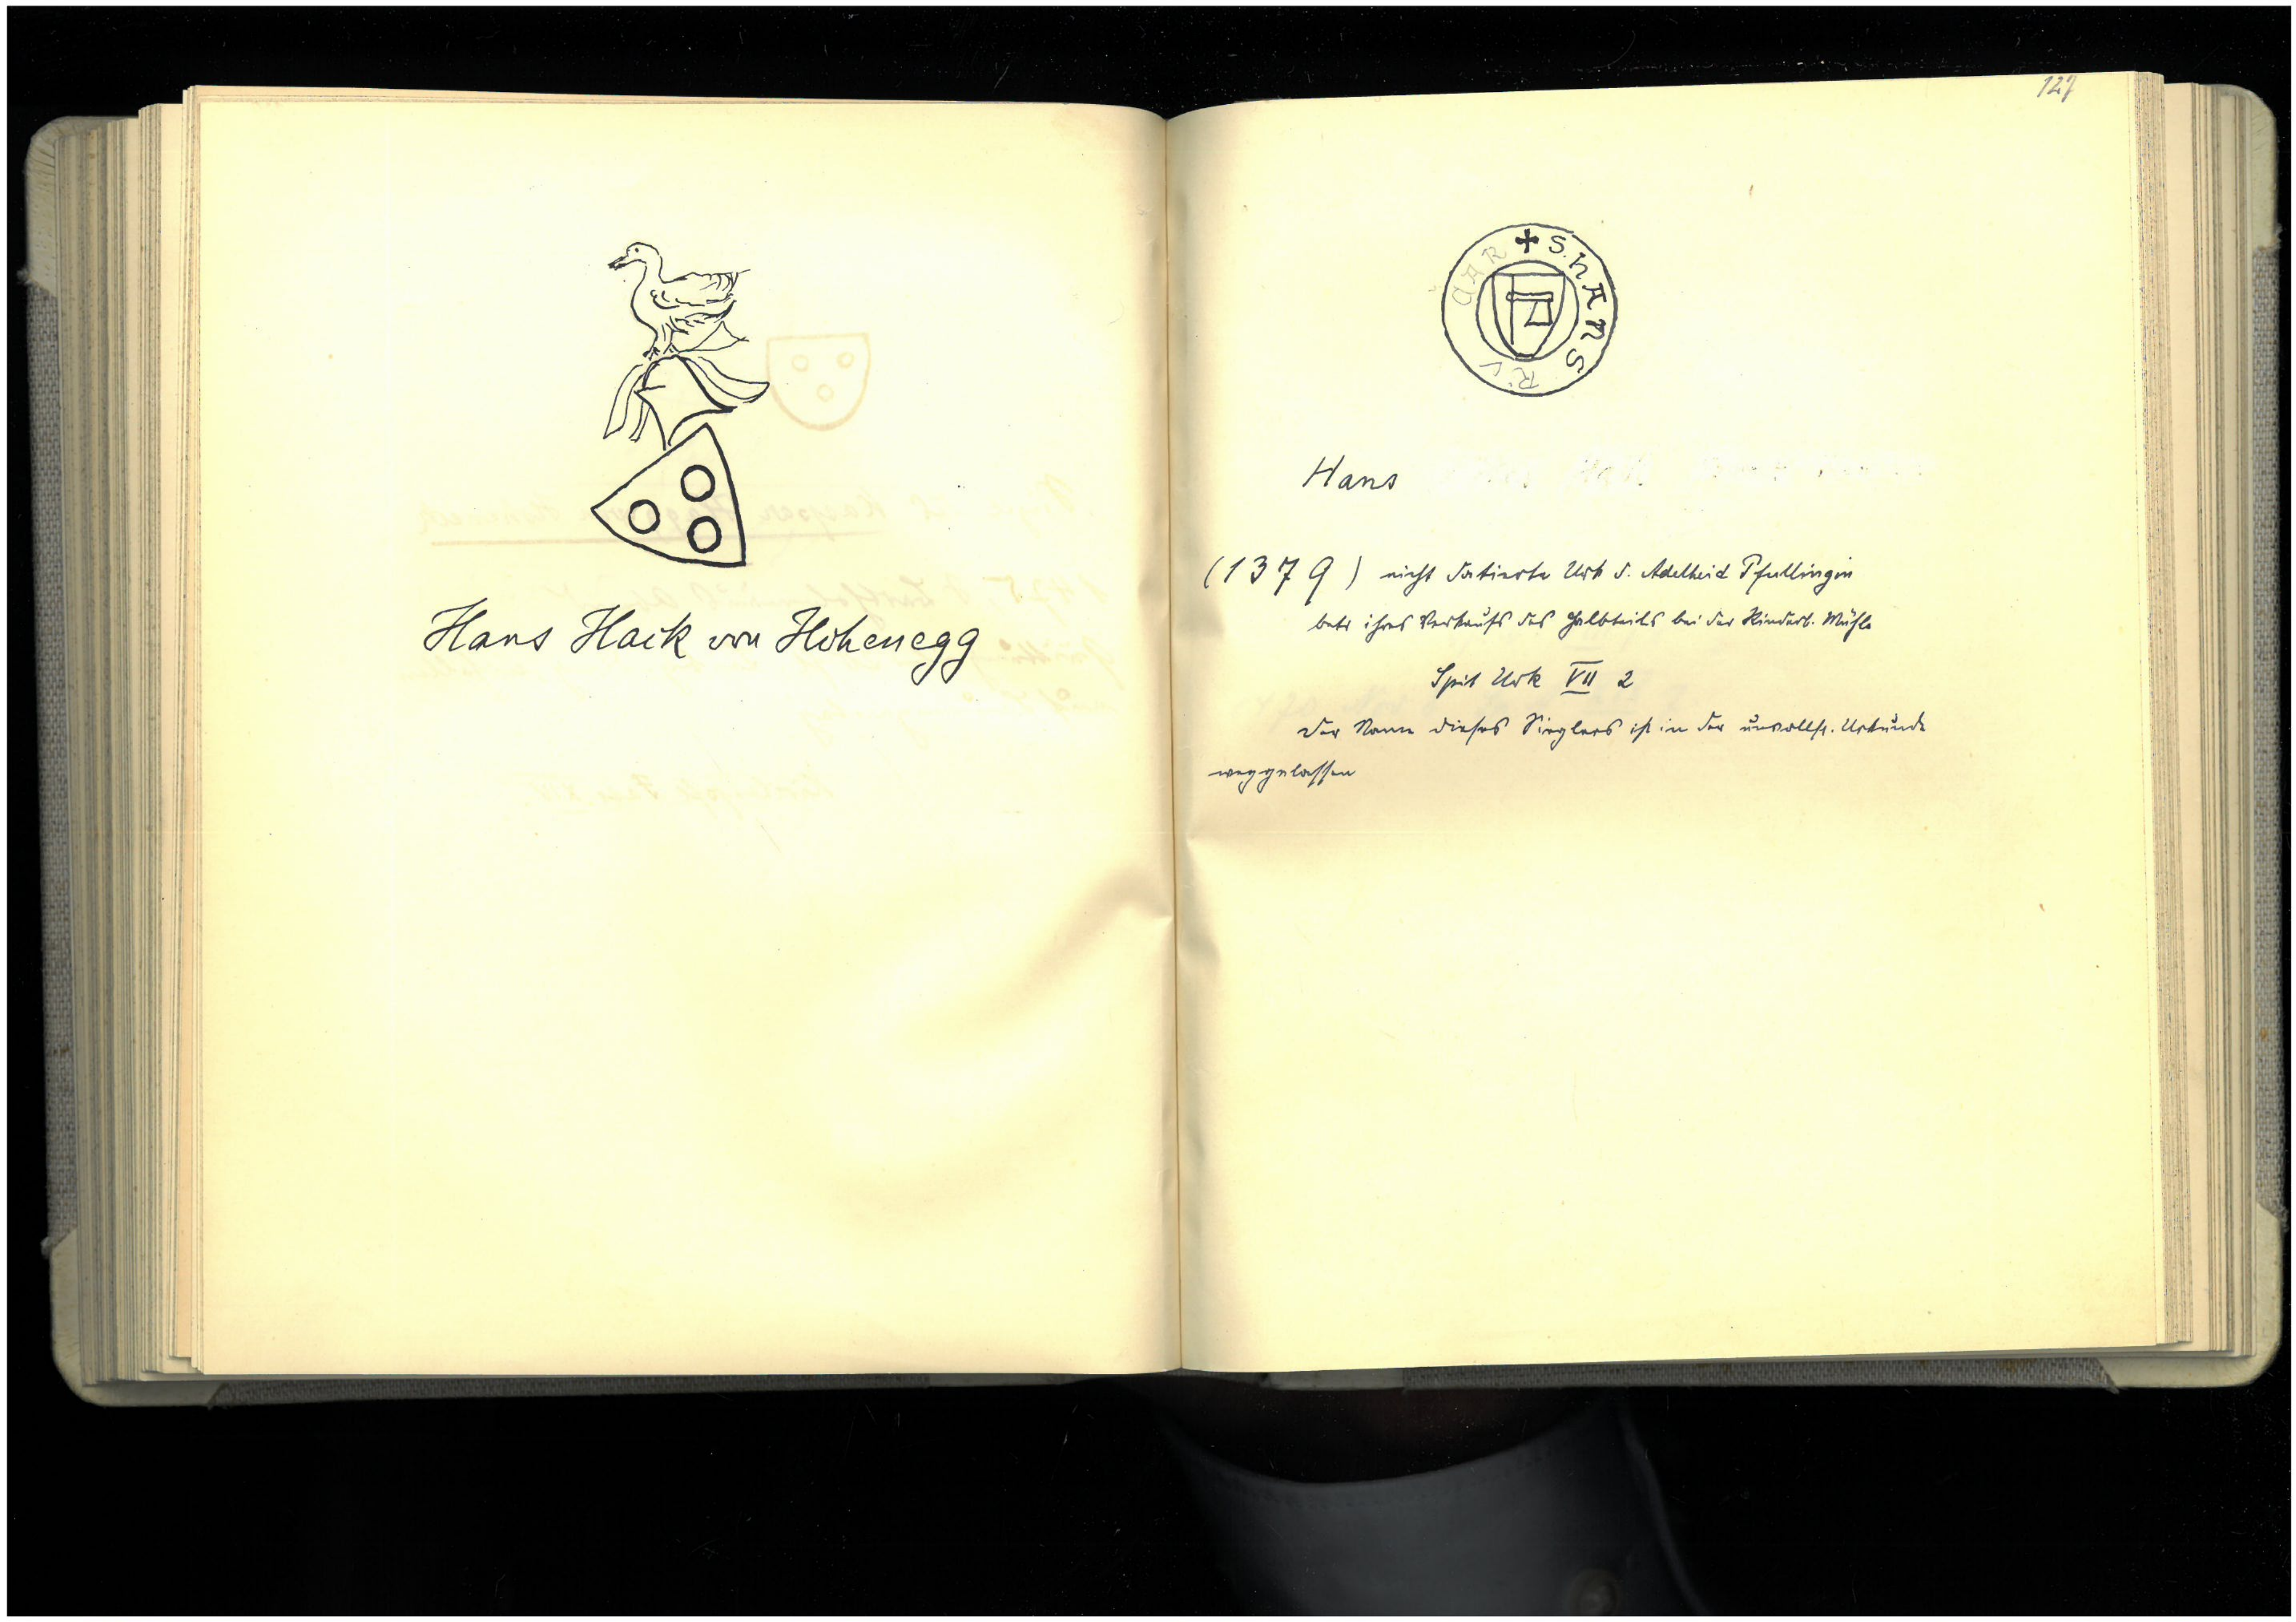 Hans Hack von Hohenegg
127
+ S. hANS
Hans
(1379) nicht datierte Urk d. Adelheid Pfullingin
betr ihres Verkaufs des Halbteils bei der Mühle
Spit Urk VII 2
Der Name dieses Sieglers ist in der unvollst. Urkunde
weggelassen